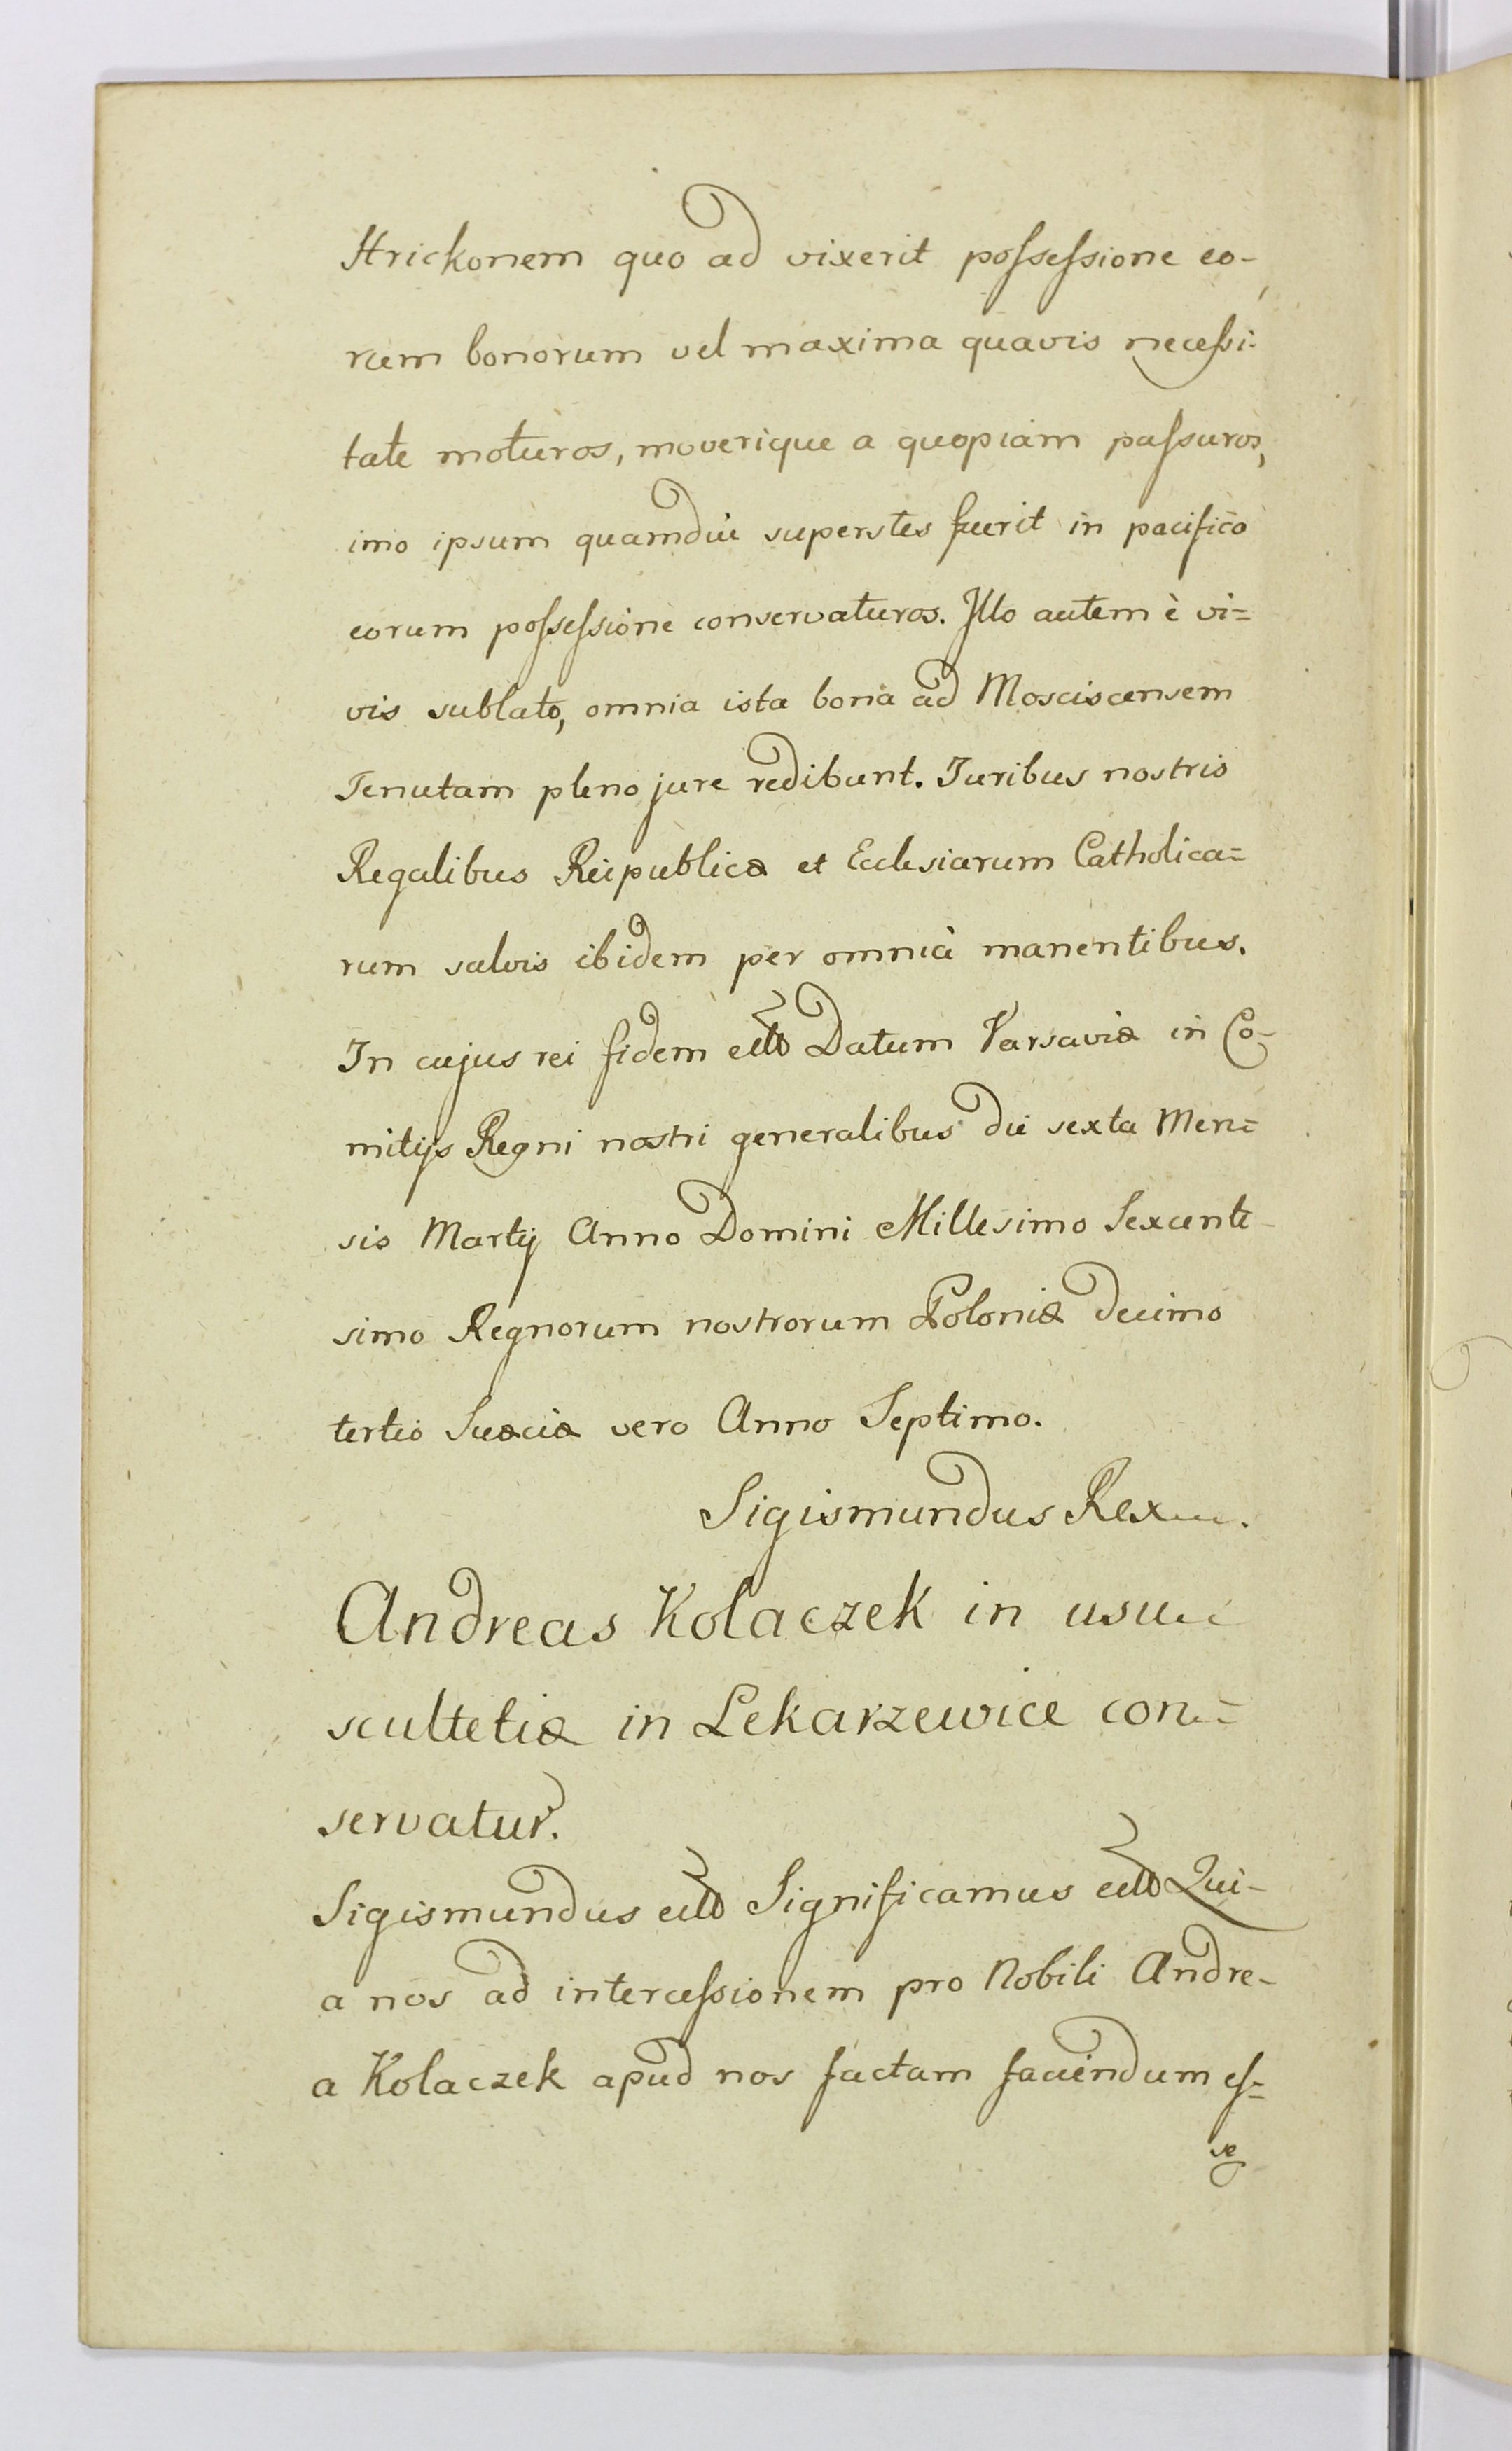 Hrickonem quo ad vixerit possessione eo-
rum bonorum vel maxima quavis necessi-
tate moturos, moverique a quopiam passuros,
imo ipsum quamdiu superstes fuerit in pacifico
eorum possessione conservaturos. Illo autem è vi=
vis sublato, omnia ista bona ad Mosciscensem
Tenutam pleno jure redibunt. Juribus nostris
Regalibus Reipublicæ et Ecclesiarum Catholica=
rum salvis ibidem per omnia manentibus.
In cujus rei fidem etc Datum Varsaviæ in Co-
mitijs Regni nostri generalibus die sexta Men=
sis Martij Anno Domini Millesimo Sexcente-
simo Regnorum nostrorum Poloniæ decimo
tertio Suæciæ vero Anno Septimo.
Sigismundus Rex.
Andreas Kolaczek in usu
scultetiæ in Lekarzewice con=
servatur.
Sigismundus etc Significamus etc Qui-
a nos ad intercessionem pro Nobili Andre-
a Kolaczek apud nos factam faciendum es=
se